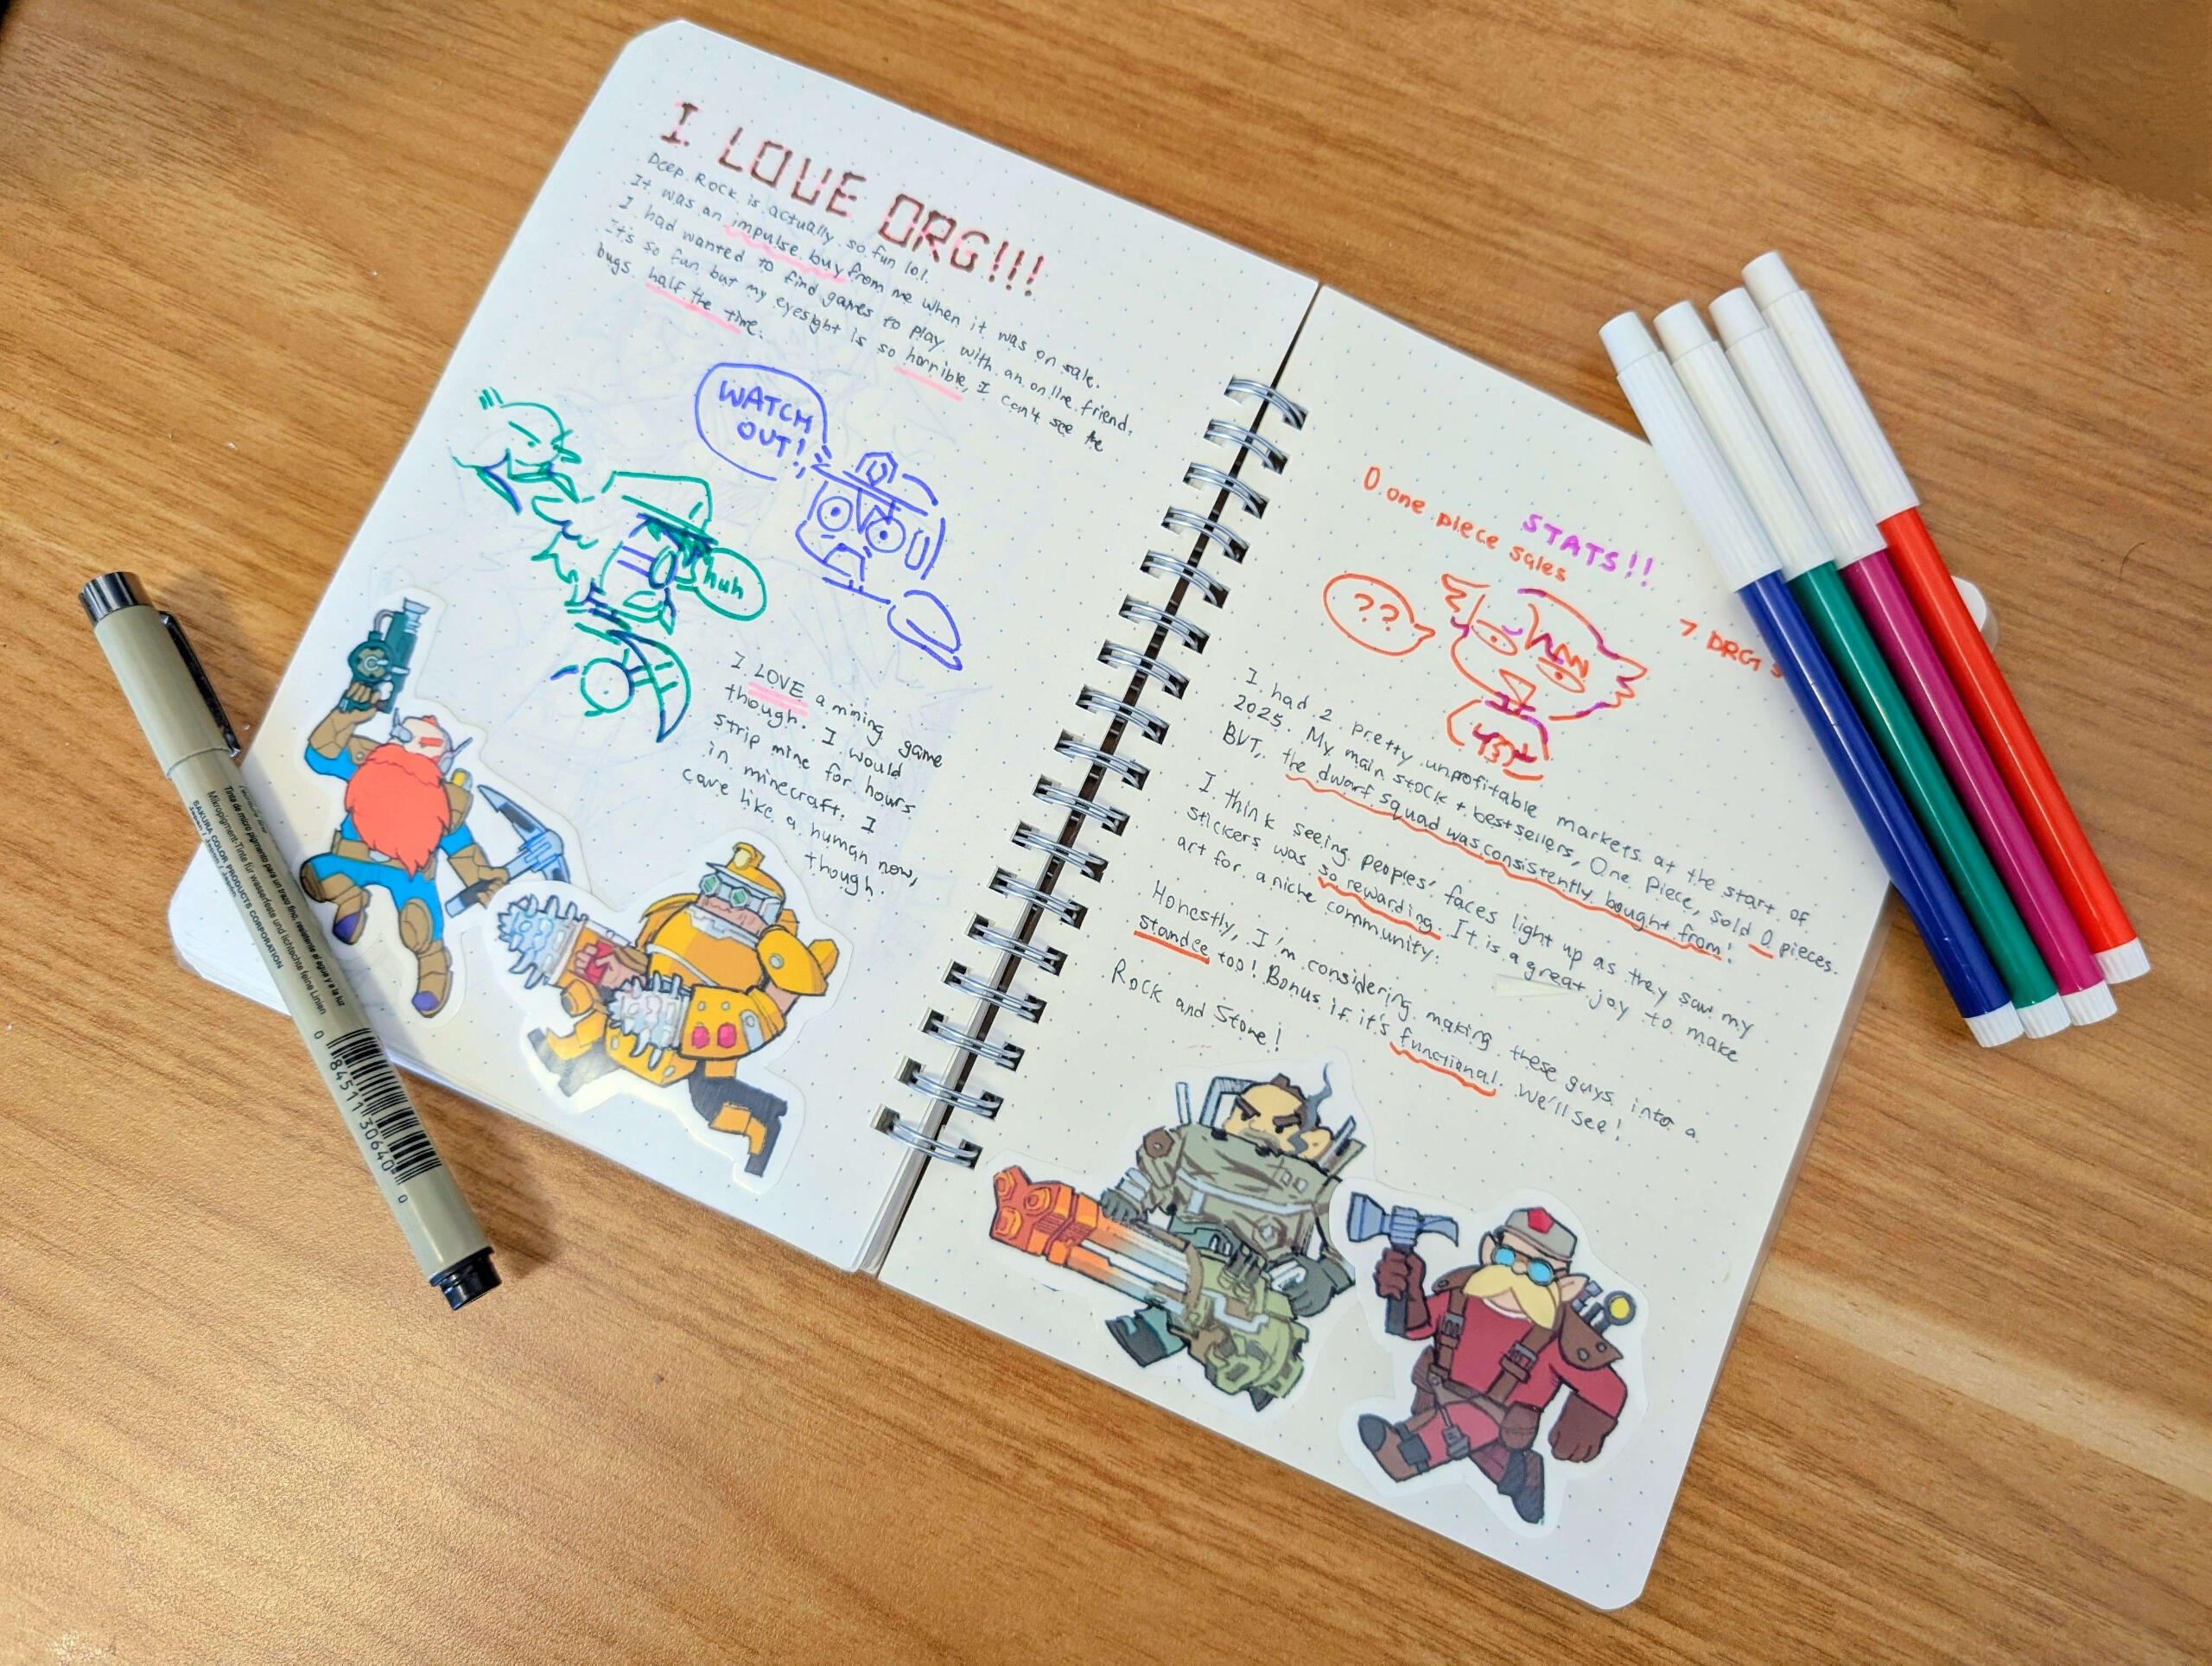 I LOVE DRG!!!
Deep Rock is actually so fun lol.
It was an impulse buy from me when it was on sale.
I had wanted to find games to play with an online friend.
It's so fun but my eyesight is so horrible, I can't see the
bugs half the time.
WATCH
OUT!
huh
I LOVE a mining game
though. I would
strip mine for hours
in minecraft. I
cave like a human now,
though.
STATS!!
0 one piece sales
??
7 DRG S
I had 2 pretty unprofitable markets at the start of
2025. My main stock + bestsellers, One Piece, sold 0 pieces.
BUT, the dwarf squad was consistently bought from!
I think seeing peoples' faces light up as they saw my
stickers was so rewarding. It is a great joy to make
art for a niche community.
Honestly, I'm considering making these guys into a
standee too! Bonus if it's functional. We'll see!
Rock and Stone!
Tinta de micro pigmento para un trazo fino, resistente al agua y a la luz
Mikropigment-Tinte für wasserfeste und lichtechte feine Linien
SAKURA COLOR PRODUCTS CORPORATION
Japan / Japon
0 84511 30640 0